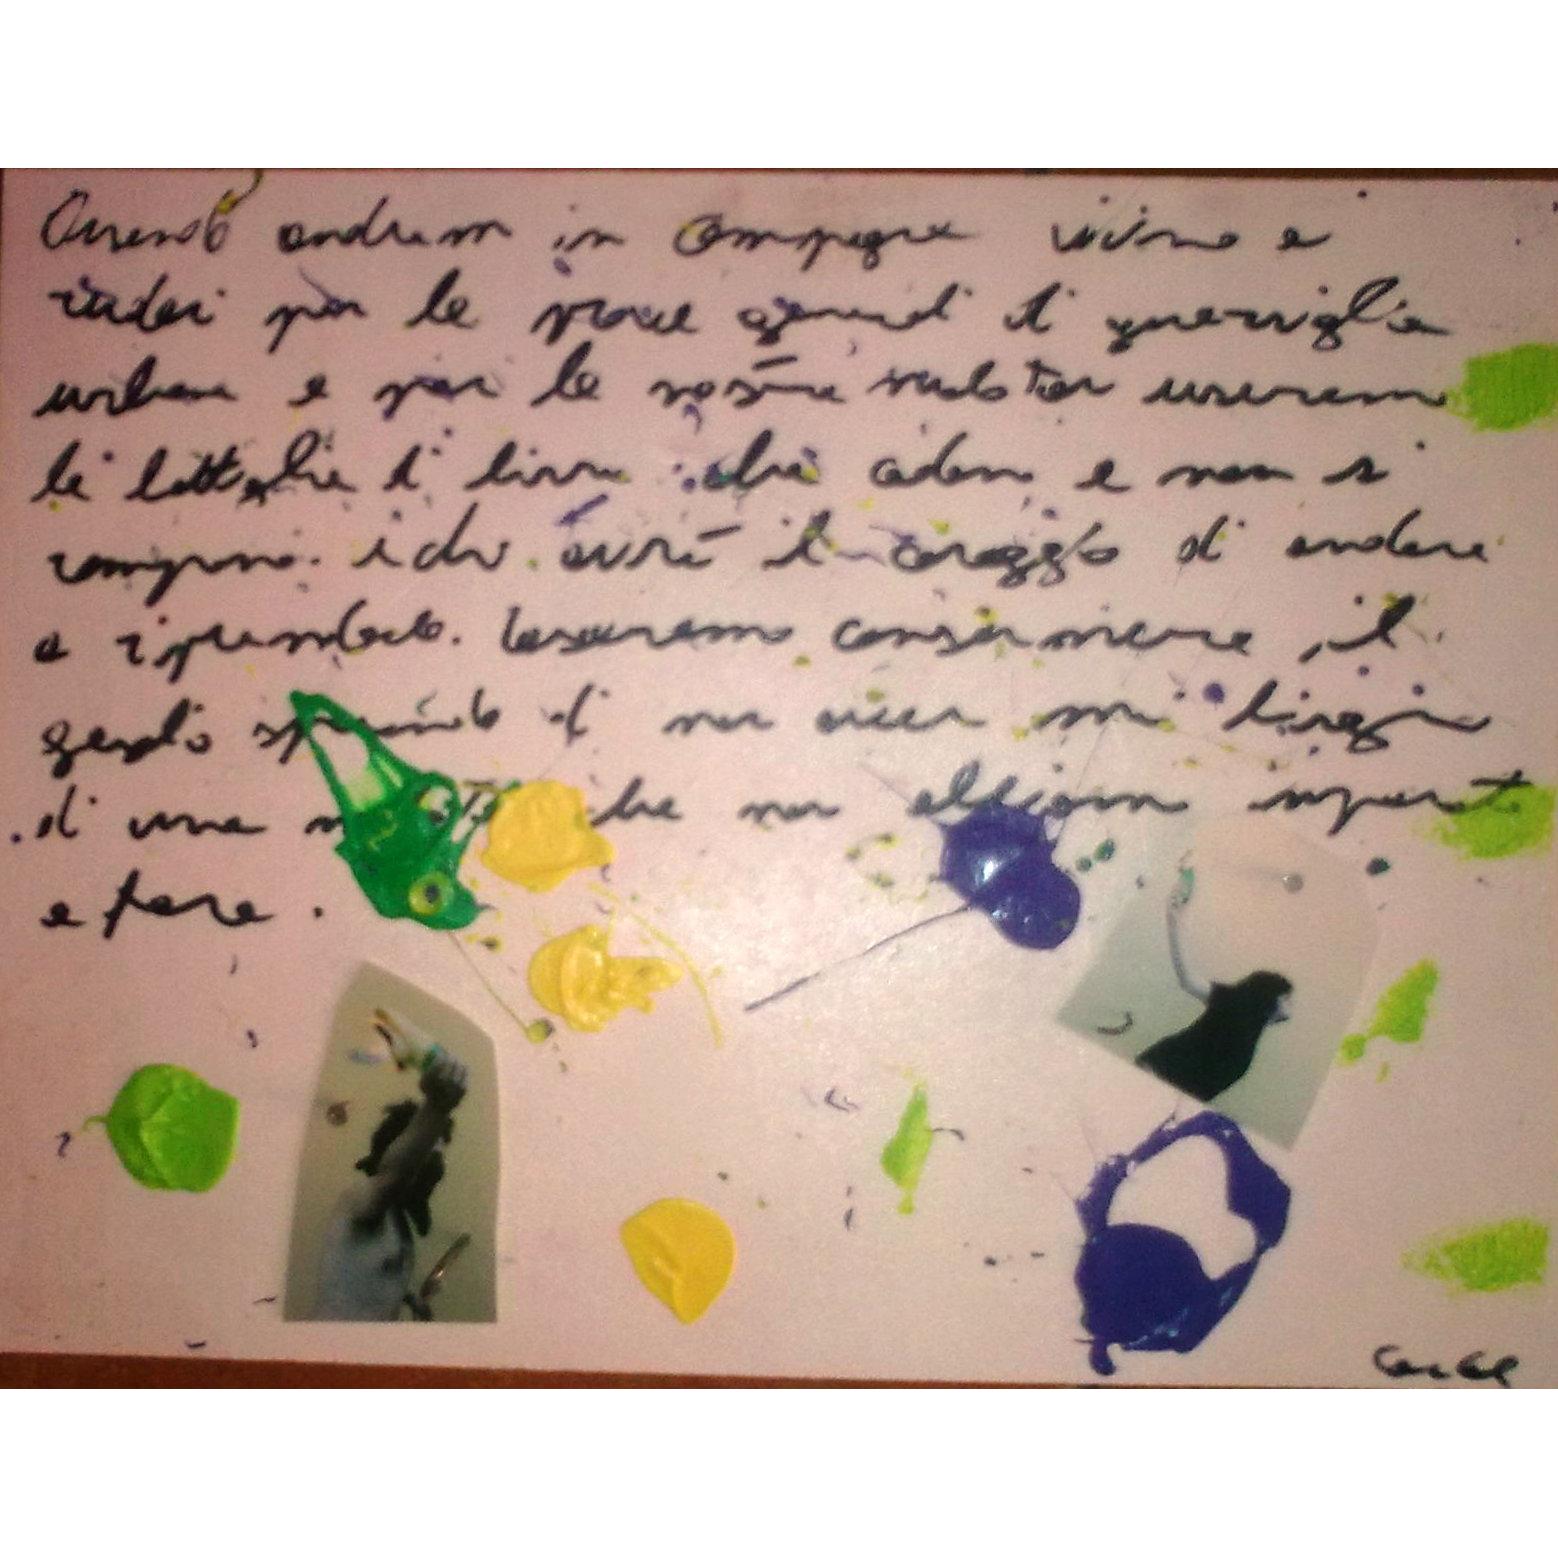 Quando andrem in campagna vicino a
per le prove generali di guerriglia
urbana e per le nostre molotov useremo
le bottiglie di birra che cadono e non si
rompono. chi avrà il coraggio di andare
a riprenderle. lasceremo consumare il
gesto sperando di non aver mai bisogno
di una che non abbiamo imparato
a fare.